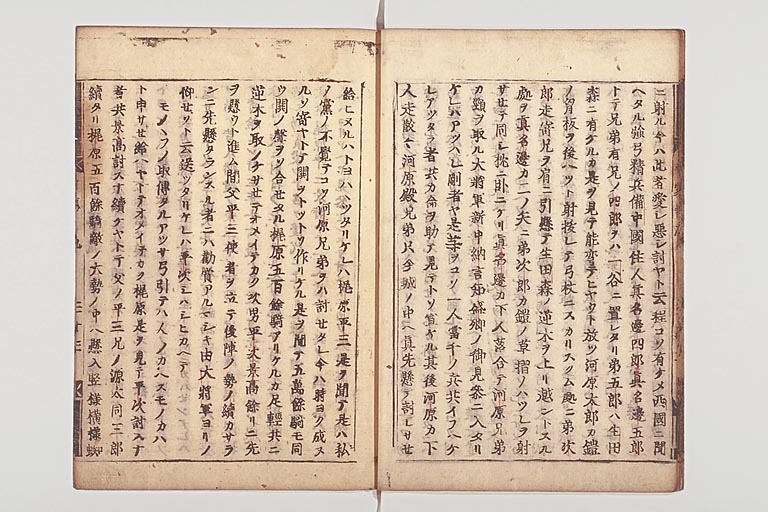 ニ射ル今ハ此者愛シ悪シ討ヤト云程コソ有ケメ西國ニ聞
ヘタル強弓精兵備中國住人真名邊四郎真名邊五郎
トテ兄弟有兄ノ四郎ヲハ一谷ニ置レタリ弟五郎ハ生田
森ニ有ケルカ是ヲ見テ能引テヒヤウト放ツ河原太郎カ鎧
ノ胸板ヲ後ヘツト射拔レテ弓杖ニスカリスクム処ニ弟次
郎走寄兄ヲ肩ニ引懸テ生田森ノ逆木ヲ上リ越ントスル
処ヲ真名邊カ二ノ矢ニ弟次郎カ鎧ノ草摺ノハツレヲ射
サセテ同シ枕ニ臥ニケリ真名邊カ下人落合テ河原兄弟
カ頸ヲ取ル大將軍新中納言知盛卿ノ御見參ニ入タリ
ケレハアツハレ剛者ヤ是等ヲコソ一人當千ノ兵共イフヘケ
レアツタラ者共カ命ヲ助テ見テトソ宣ケル其後河原カ下
人走散テ河原殿兄弟只今城ノ中ヘ真先懸テ討レサセ
給ヒヌルハトヨハハツタリケレハ梶原平三是ヲ聞テ是ハ私
ノ黨ノ不覺テコソ河原兄弟ヲハ討セタレ今ハ時ヨク成ヌ
ルソ寄ヤトテ閧ヲトツトソ作リケル是ヲ聞テ五萬餘騎モ同
ウ閧ノ聲ヲソ合セタル梶原五百餘騎アリケルカ足輕共ニ
逆木ヲ取ノケサセテオメイテカク次男平次景高餘リニ先
ヲ懸ウト進ム間父平三使者ヲ立テ後陣ノ勢ノ續カサラ
ンニ先懸タランスル者ニハ勸賞アルマシキ由大將軍ヨリノ
仰セソト云送ツタリケレハ平次シハシヒカヘテ
モノノフノ取傳タルアツサ弓引テハ人ノカヘスモノカハ
ト申サセ給ヘヤトテオメイテカク梶原是ヲ見テ平次討スナ
者共景高討スナ續ケヤトテ父ノ平三兄ノ源太同三郎
續タリ梶原五百餘騎敵ノ大勢ノ中ヘ懸入竪樣橫樣蜘